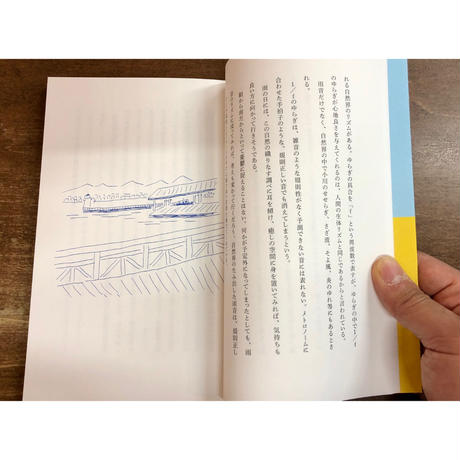 れる自然界のリズムがある。ゆらぎの具合を「f」という周波数で表すが、ゆらぎの中で1/f
のゆらぎが心地良さを与えてくれるのは、人間の生体リズムと同じであるからと言われている。
雨音だけでなく、自然界の中で小川のせせらぎ、さざ波、そよ風、炎のゆれ等にもあるとさ
れる。
1/fのゆらぎは、雑音のような規則性がなく予測できない音には表れない。メトロノームに
合わせた手拍子のような、規則正しい音でも消えてしまうという。
雨の日には、この自然の織りなす調べに耳を傾け、癒しの空間に身を置いてみれば、気持ちも
良い方に向かって行きそうである。
朝から雨だからといって憂鬱に捉えることはない。何かが予定外になってしまったとしても、雨
自然界の生み出した雨音は、規則正し